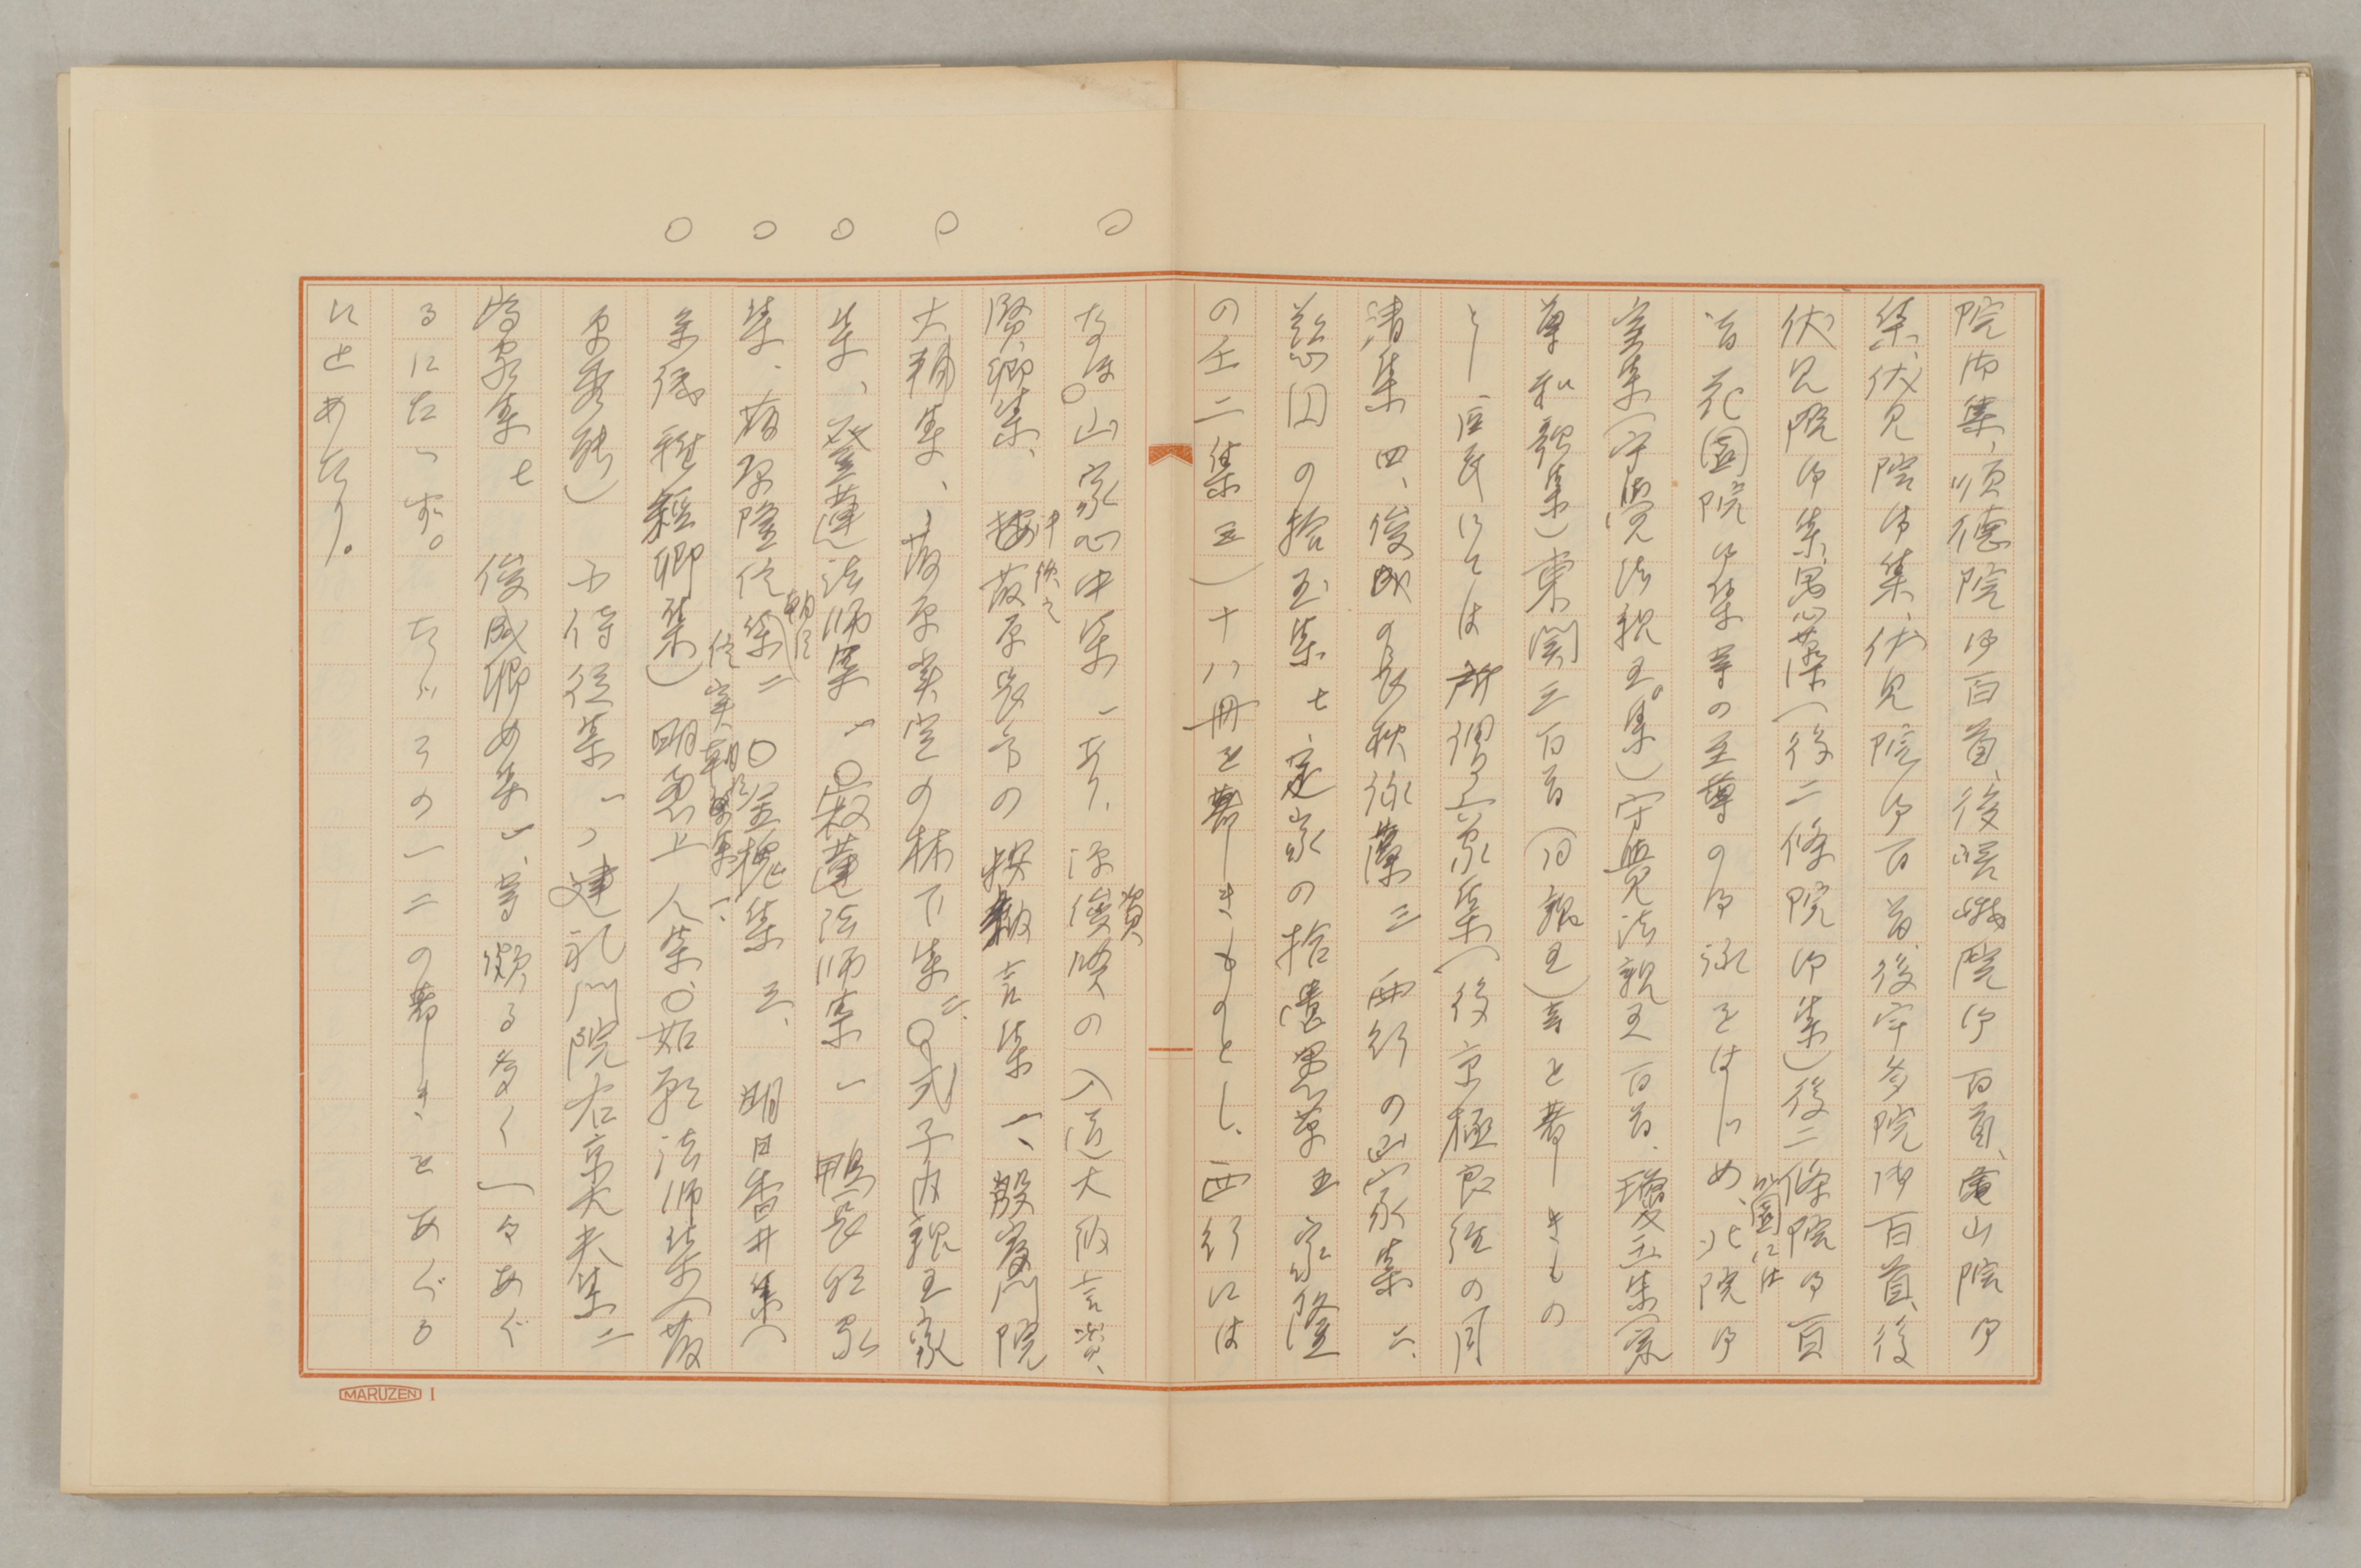 院御集、順徳院御百首、後嵯峨院御百首、亀山院御
集、伏見院御集、伏見院御百首、後宇多院御百首、後
伏見院御集、愚心藻(後二條院御集)後二條院御百
首花園院御集等の至尊の御詠をはじめ、北院御
室集(守覚法親王集)守覚法親王百首、瓊玉集(宗
尊和歌集)東関三百首(同親王)者と著しきもの
とし臣民にては所謂六家集(後京極良経の月
清集四、俊成の長秋詠藻三 西行の山家集二、
慈円の拾玉集七、定家の拾遺愚草五 家隆
の壬二集五)十八冊を著しきものとし、西行には
なほ○山家心中集一あり、源俊賢の入道大納言資
賢卿集、 按 藤原 の按納言集一、殷富門院
大輔集、藤原実定の林下集二、○式子内親王家
集、登蓮法師集一○寂蓮法師集一 鴨長明家
集、藤原隆信集二 ○金槐集三、 明日香井集(
参議雅経卿集) 明恵上人集、○如願法師集(藤
原秀能) 小侍従集一、建礼門院右京大夫集二
俊成卿女集一、等頗る多く一々あぐ
るにたへず。 たゞその一二の著しきをあぐる
にとめたり。
○
○
○
○
○
MARUZEN I